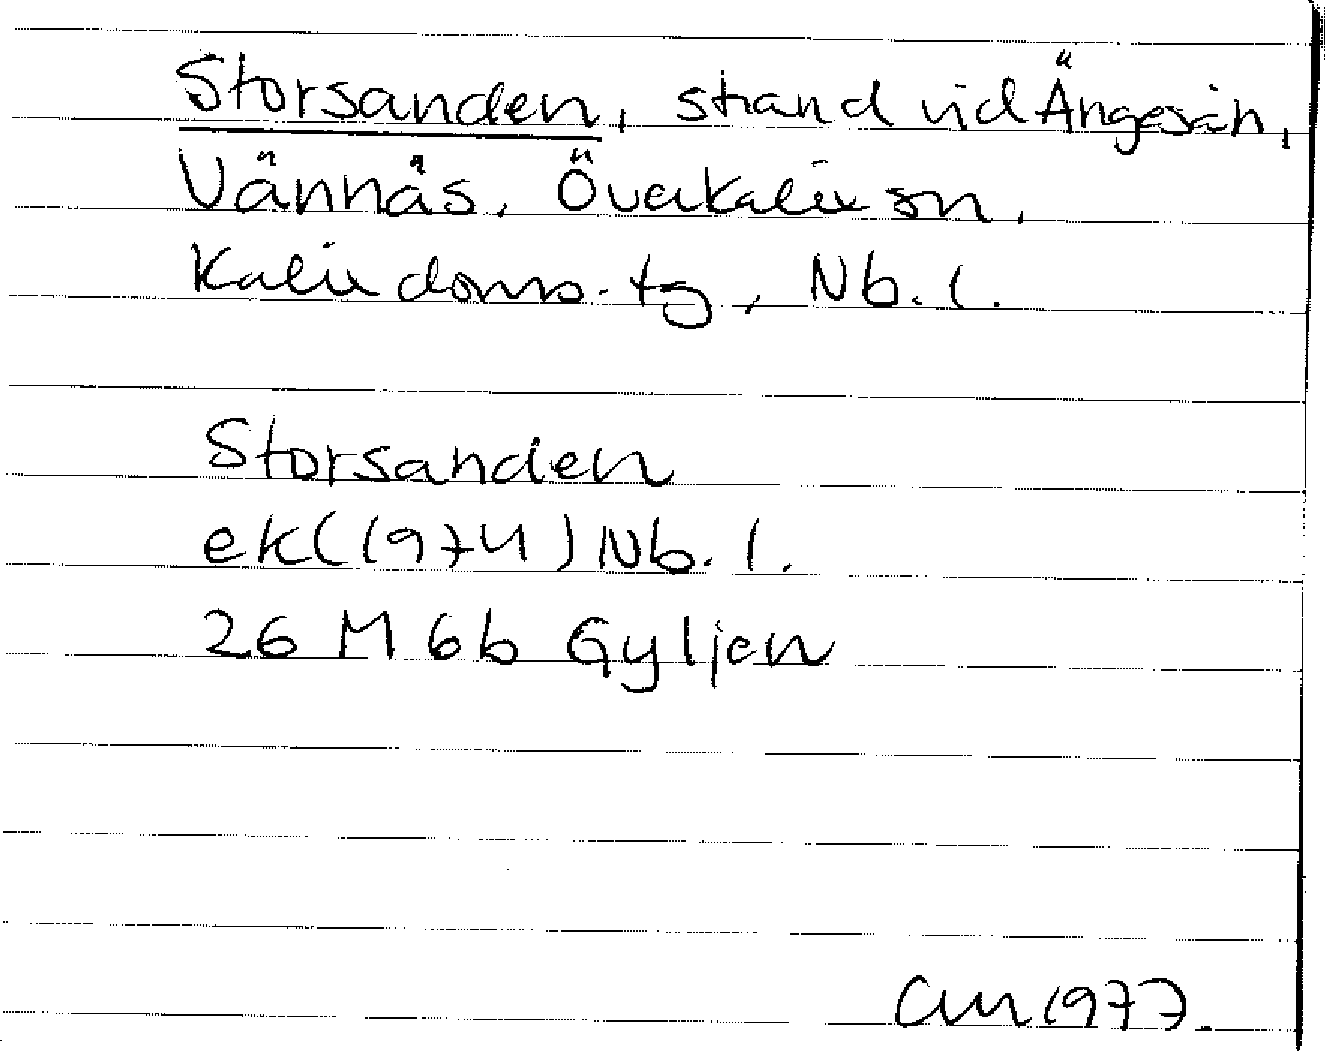 Storsanden, strand vid Ängesån,
Vännäs, Överkalix sn,
Kalix doms. tg, Nb. l.
Storsanden
ek (1974) Nb. l.
26 M 6b Gyljen
1977.